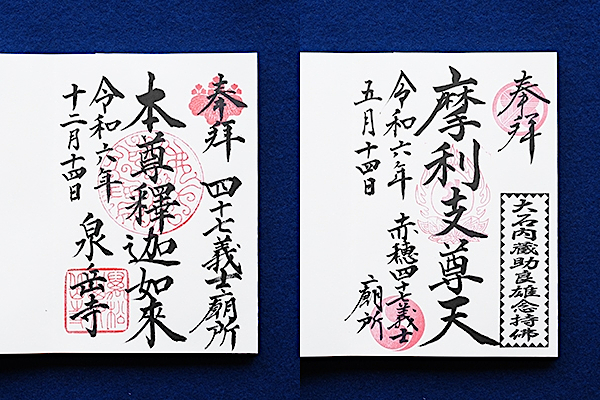 奉拝 四十七義士廟所
本尊釋迦如來
泉岳寺
令和六年
十二月十四日
奉拜
大石内蔵助良雄念持佛
摩利支尊天
赤穂四十七義士
廟所
令和六年
五月十四日